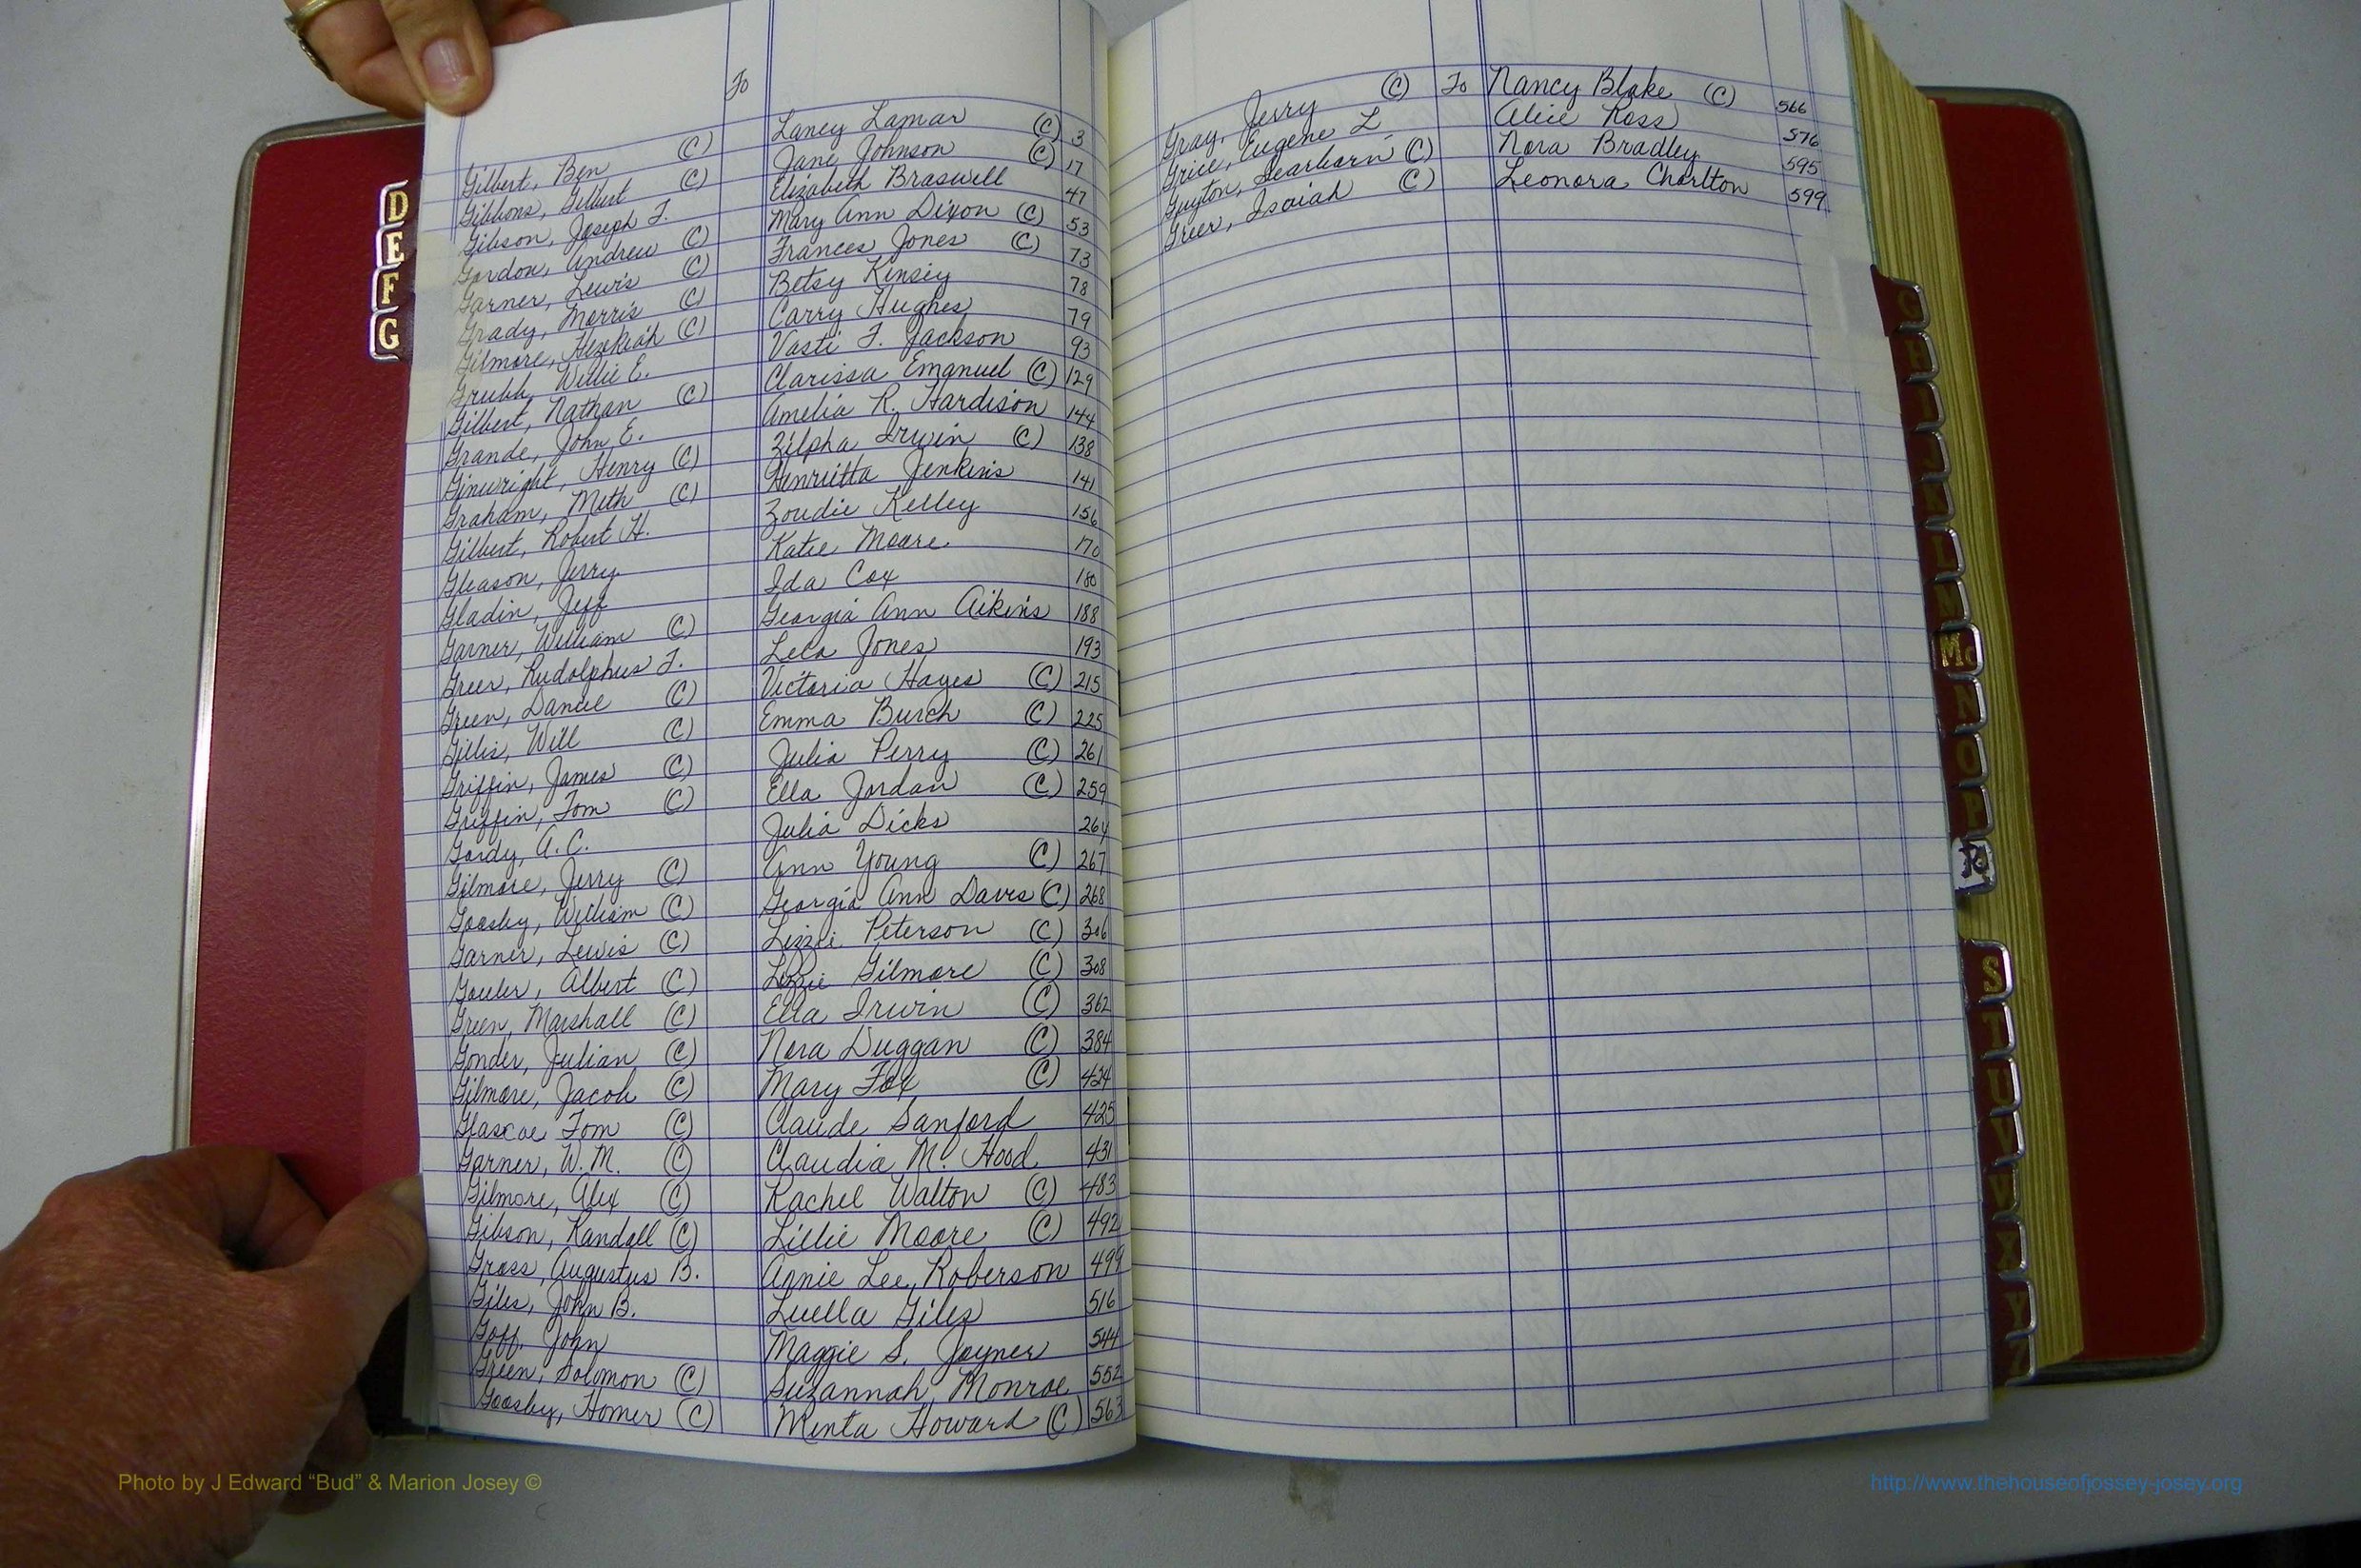 To
Gilbert, Ben (C) Laney Lamar (C) 3
Gibbons, Gilbert (C) Jane Johnson (C) 17
Gibson, Joseph T. Elizabeth Braswell 47
Gordon, Andrew (C) Mary Ann Dixon (C) 53
Garner, Lewis (C) Frances Jones (C) 73
Grady, Morris (C) Betsy Kinsey 78
Gilmore, Hezkiah (C) Carry Hughes 79
Grubb, Willie E. Vasti F. Jackson 93
Gilbert, Nathan (C) Clarissa Emanuel (C) 129
Grande, John E. Amelia R. Hardison 144
Ginwright, Henry (C) Zilpha Irwin (C) 138
Graham, Meth (C) Henrietta Jenkins 141
Gilbert, Robert H. Zoudie Kelley 156
Gleason, Jerry Katie Moore 170
Gladin, Jeff Ida Cox 180
Garner, William (C) Georgia Ann Aikens 188
Greer, Rudolphus T. Lela Jones 193
Green, Daniel (C) Victoria Hayes (C) 215
Gillis, Will (C) Emma Burch (C) 225
Griffin, James (C) Julia Perry (C) 261
Griffin, Tom (C) Ella Jordan (C) 259
Gordy, A.C. Julia Dicks 264
Gilmore, Jerry (C) Ann Young (C) 267
Goosby, William (C) Georgia Ann Davis (C) 268
Garner, Lewis (C) Lizzie Peterson (C) 306
Albert (C) Lizzie Gilmore (C) 308
Green, Marshall (C) Ella Irwin (C) 362
Gonder, Julian (C) Nora Duggan (C) 384
Gilmore, Jacob (C) Mary Fox (C) 424
Glascoe, Tom (C) Claude Sanford 425
Garner, W. M. (C) Claudia M. Hood 431
Gilmore, Alex (C) Rachel Walton (C) 483
Gibson, Randall (C) Lillie Moore (C) 492
Gross, Augustus B. Annie Lee Roberson 499
Giles, John B. Luella Giles 516
Goff, John Maggie S. Joyner 544
Green, Solomon (C) Suzannah Monroe 552
Goosby, Homer (C) Minta Howard (C) 563
Gray, Jerry (C) To Nancy Blake (C) 566
Grice, Eugene L. Alice Ross 576
Guyton, Dearborn (C) Nora Bradley 595
Greer, Isaiah (C) Leonora Charlton 599
D
E
F
G
G
H
I
J
K
L
M
Mc
N
O
P
R
S
T
U
V
W
X
Y
Z
Photo by J Edward “Bud” & Marion Josey ©
http://www.thehouseofjossey-josey.org